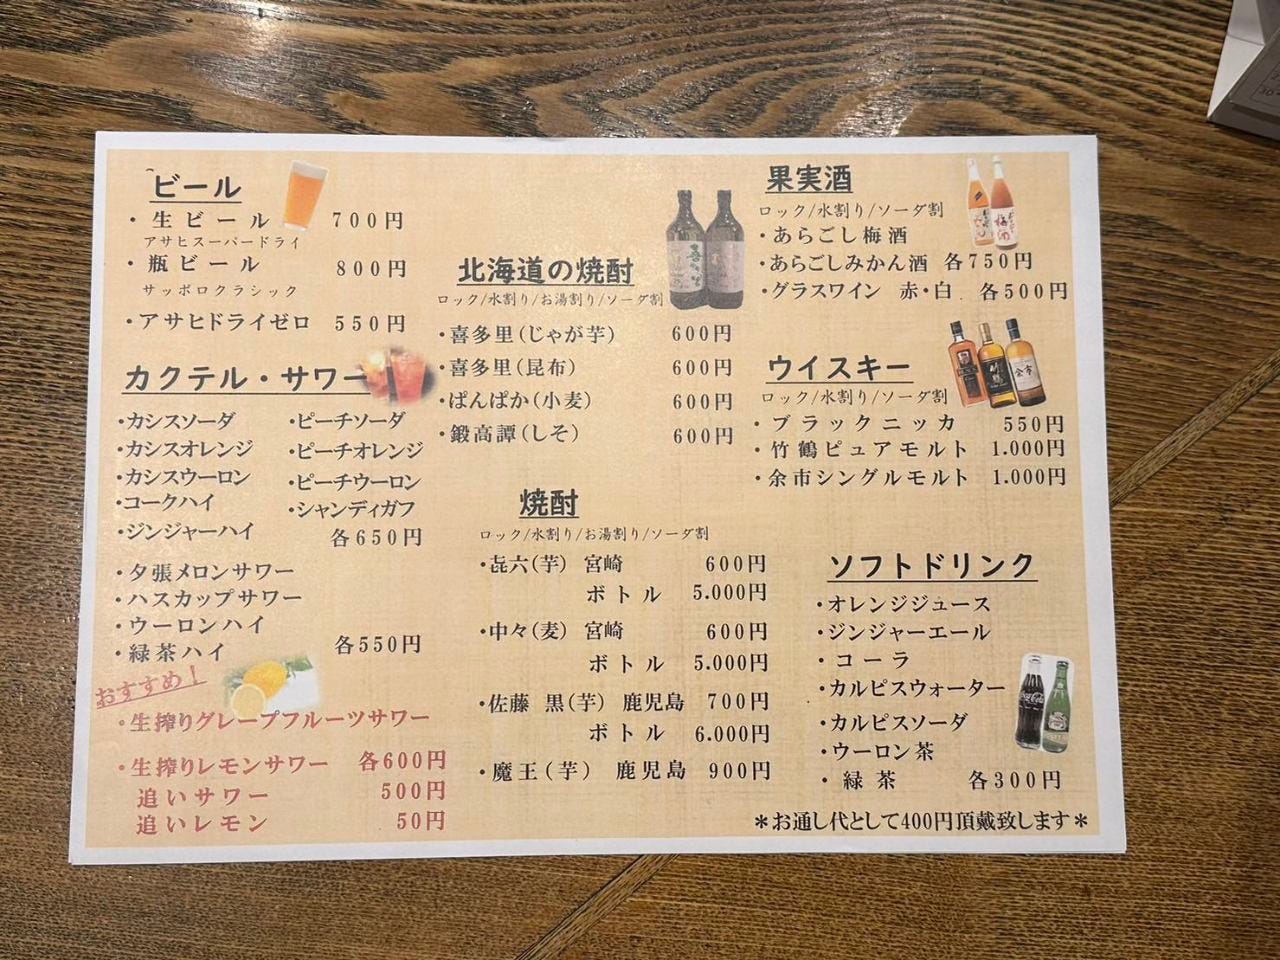 ビール
・生ビール 700円
アサヒスーパードライ
・瓶ビール 800円
サッポロクラシック
・アサヒドライゼロ 550円
カクテル・サワー
・カシスソーダ ・ピーチソーダ
・カシスオレンジ ・ピーチオレンジ
・カシスウーロン ・ピーチウーロン
・コークハイ ・シャンディガフ
・ジンジャーハイ 各650円
・夕張メロンサワー
・ハスカップサワー
・ウーロンハイ
・緑茶ハイ 各550円
おすすめ!
・生搾りグレープフルーツサワー
・生搾りレモンサワー 各600円
追いサワー 500円
追いレモン 50円
北海道の焼酎
ロック/水割り/お湯割り/ソーダ割
・喜多里(じゃが芋) 600円
・喜多里(昆布) 600円
・ぱんぱか(小麦) 600円
・鍛高譚(しそ) 600円
焼酎
ロック/水割り/お湯割り/ソーダ割
・㐂六(芋) 宮崎 600円
ボトル 5.000円
・中々(麦) 宮崎 600円
ボトル 5.000円
・佐藤 黒(芋) 鹿児島 700円
ボトル 6.000円
・魔王(芋) 鹿児島 900円
果実酒
ロック/水割り/ソーダ割
・あらごし梅酒
・あらごしみかん酒 各750円
・グラスワイン 赤・白 各500円
ウイスキー
ロック/水割り/ソーダ割
・ブラックニッカ 550円
・竹鶴ピュアモルト 1.000円
・余市シングルモルト 1.000円
ソフトドリンク
・オレンジジュース
・ジンジャーエール
・コーラ
・カルピスウォーター
・カルピスソーダ
・ウーロン茶
・緑茶 各300円
*お通し代として400円頂戴致します*